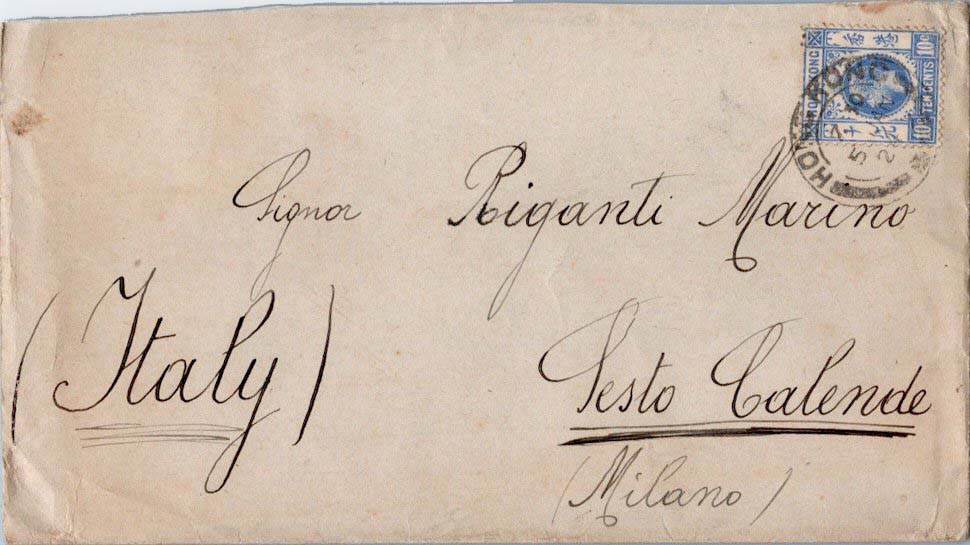 HONG KONG
香港
10c
TEN CENTS
10c
HONG KONG
Signor Riganti Marino
(Italy)
Sesto Calende
(Milano)